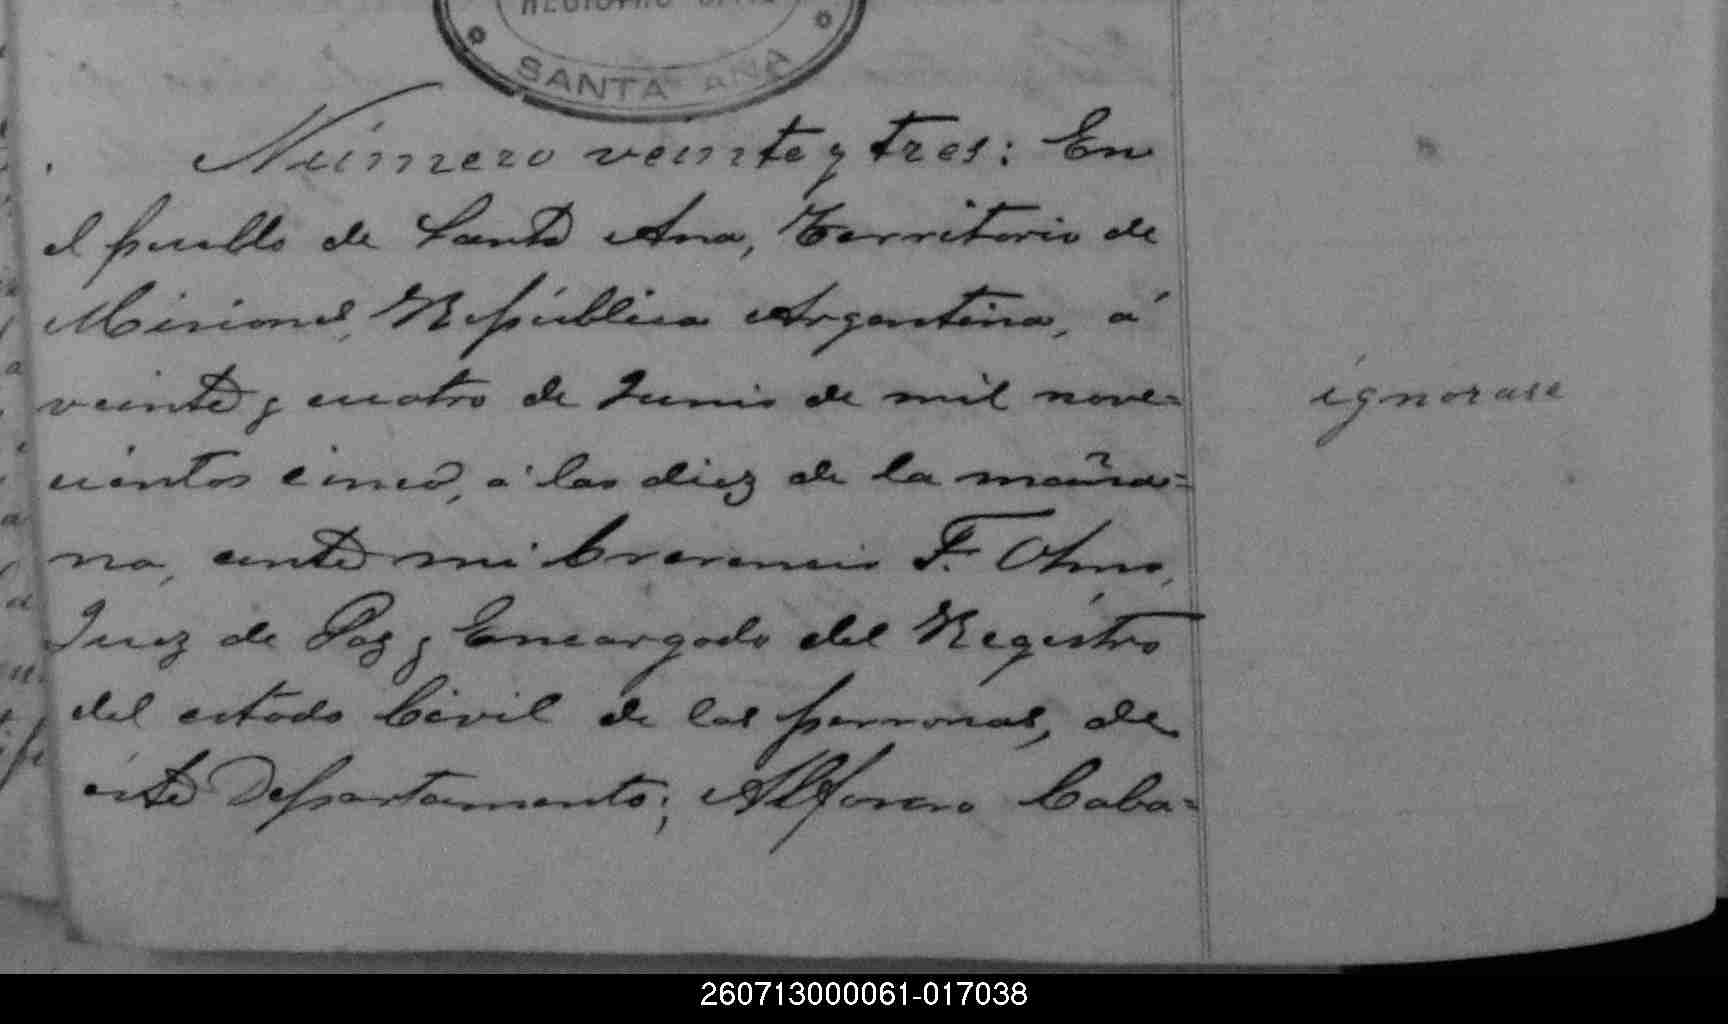 REGISTRO CIVIL
SANTA ANA
Número veinte y tres: En
el pueblo de Santa Ana, Territorio de
Misiones, República Argentina, á
veinte y cuatro de Junio de mil nove=
cientos cinco, á las diez de la maña=
na, ante mi F. Olmo,
Juez de Paz y Encargado del Registro
del estado Civil de las personas, de
éste Departamento; Caba=
ignorase
260713000061-017038